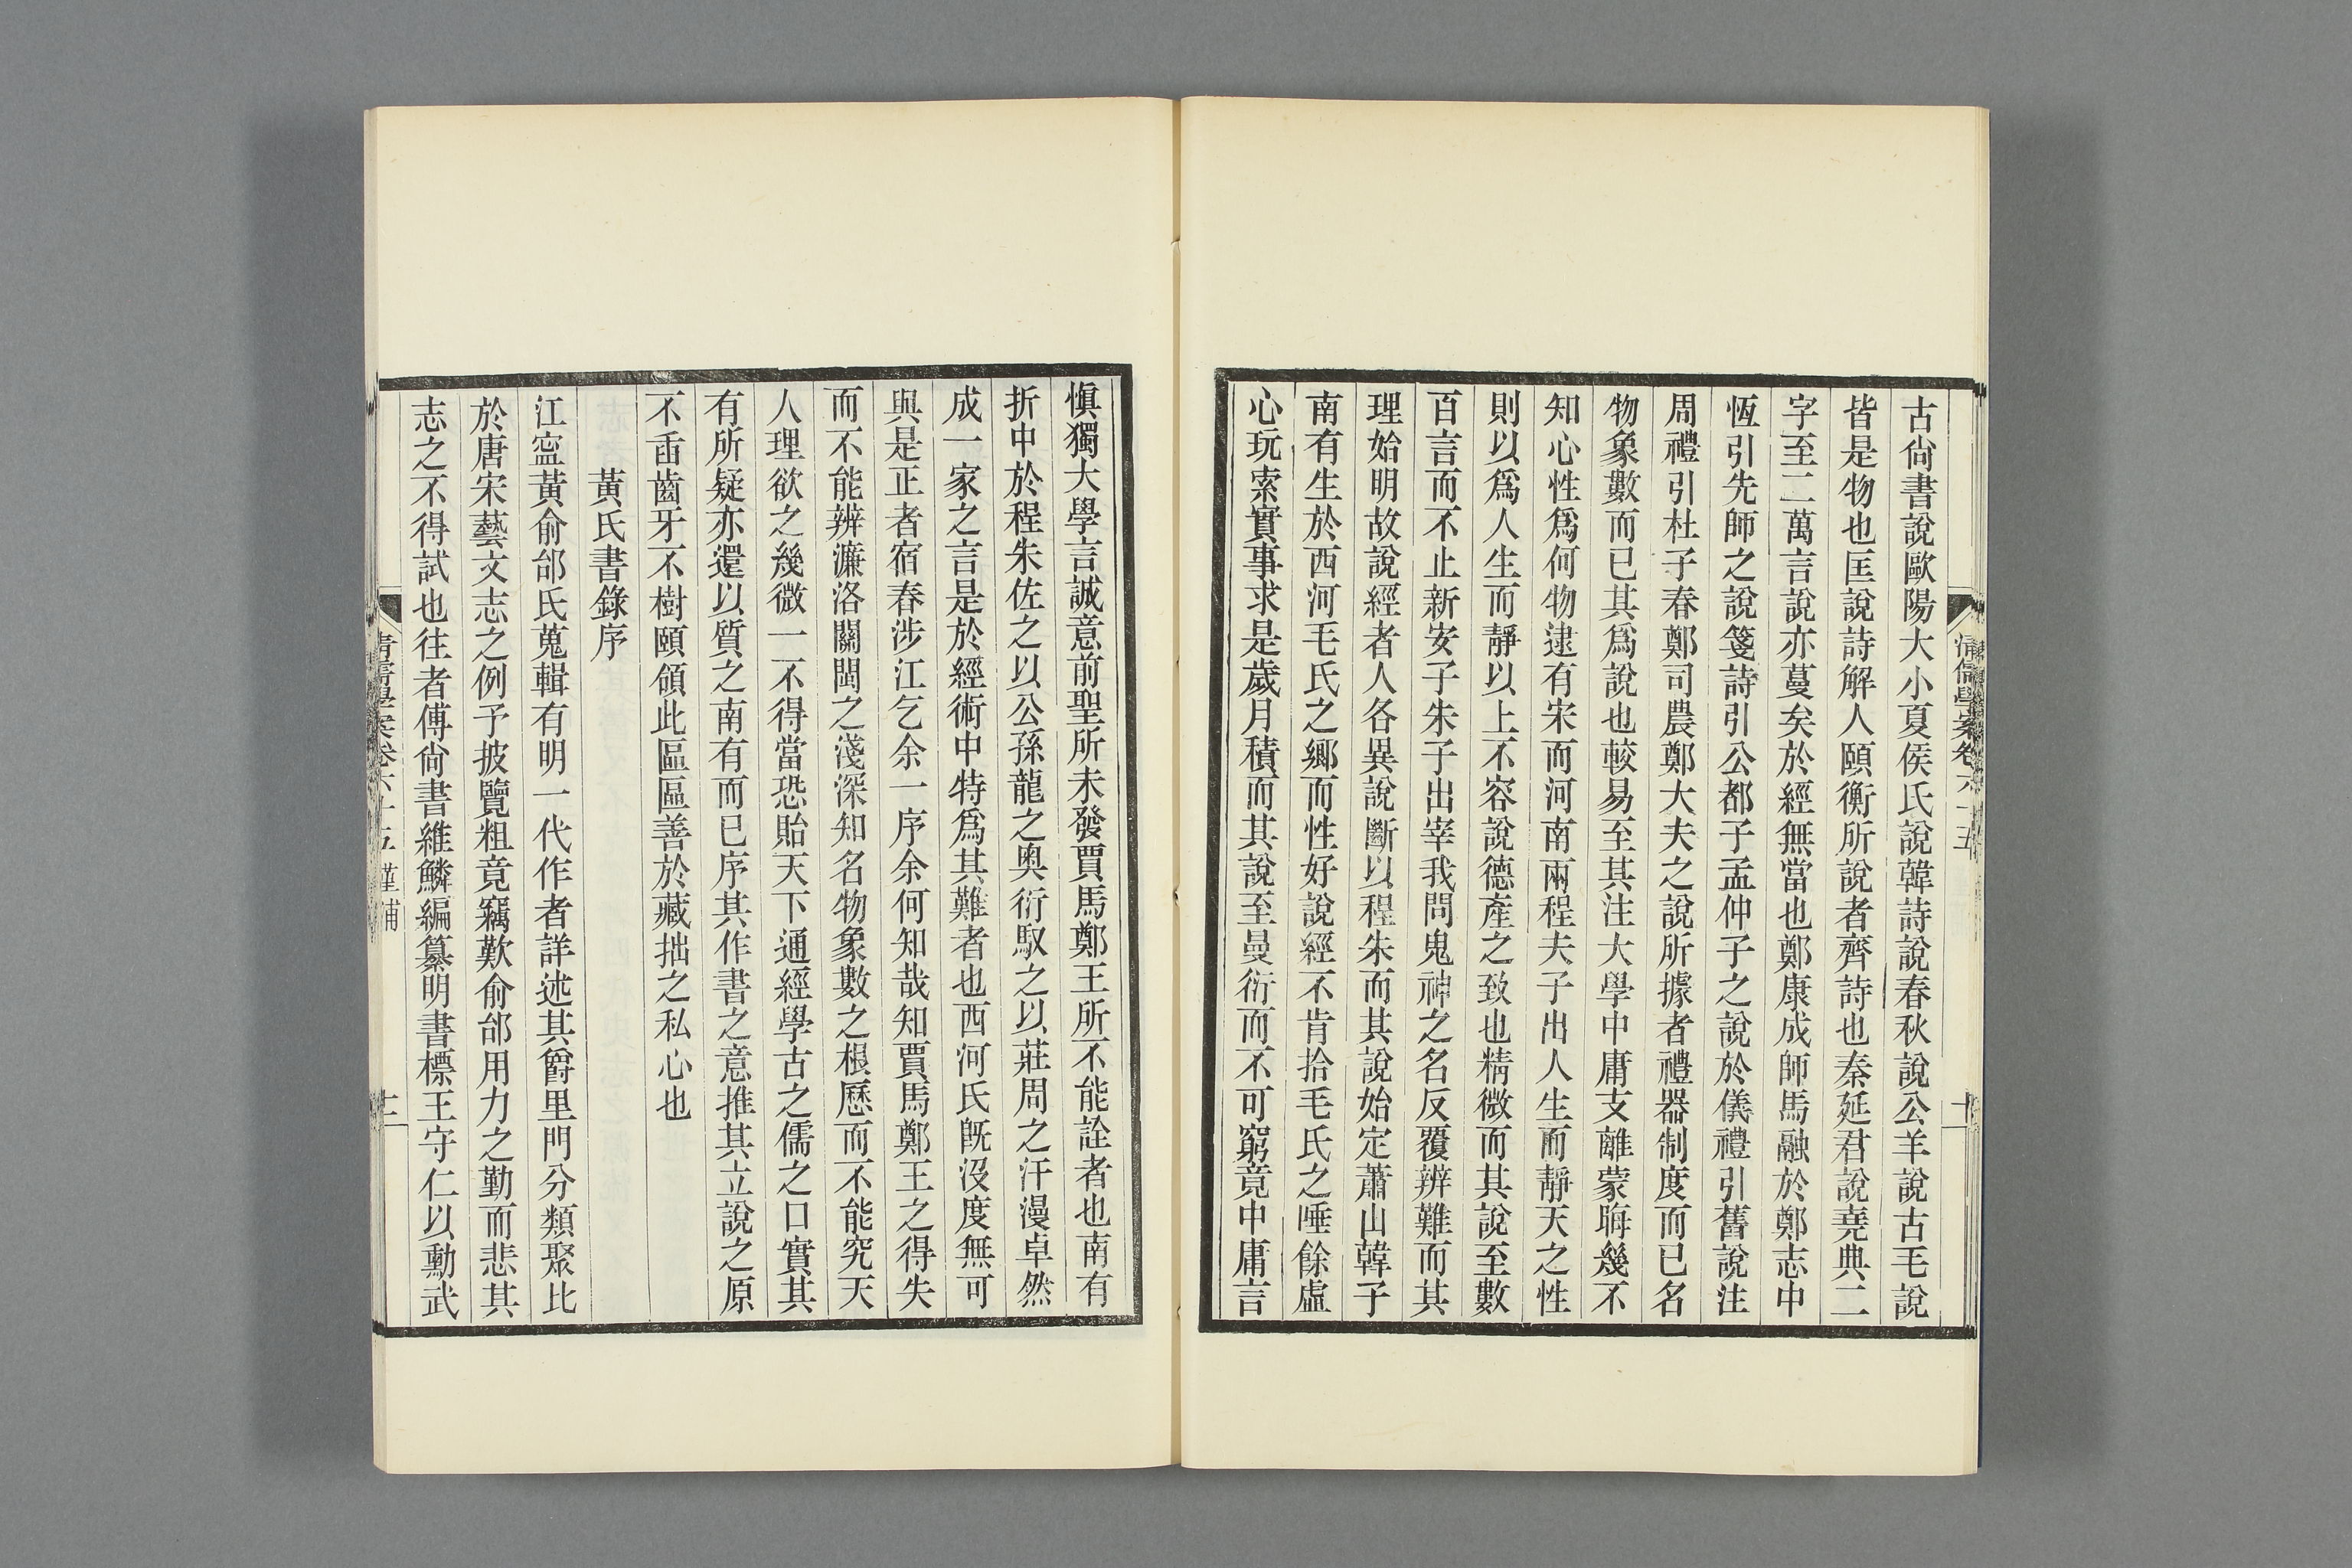 古尙書說歐陽大小夏侯氏說韓詩說春秋說公羊說古毛說
皆是物也匡說詩解人頤衡所說者齊詩也秦延君說堯典二
字至二萬言說亦蔓矣於經無當也鄭康成師馬融於鄭志中
恆引先師之說箋詩引公都子孟仲子之說於儀禮引舊說注
周禮引杜子春鄭司農鄭大夫之說所據者禮器制度而已名
物象數而已其爲說也較易至其注大學中庸支離蒙晦幾不
知心性爲何物逮有宋而河南兩程夫子出人生而靜天之性
則以爲人生而靜以上不容說德產之致也精微而其說至數
百言而不止新安子朱子出宰我問鬼神之名反覆辨難而其
理始明故說經者人各異說斷以程朱而其說始定蕭山韓子
南有生於西河毛氏之鄉而性好說經不肯拾毛氏之唾餘虛
心玩索實事求是歲月積而其說至曼衍而不可窮竟中庸言
清儒學案卷六十五
十一
愼獨大學言誠意前聖所未發賈馬鄭王所不能詮者也南有
折中於程朱佐之以公孫龍之奧衍馭之以莊周之汗漫卓然
成一家之言是於經術中特爲其難者也西河氏旣沒度無可
與是正者宿春涉江乞余一序余何知哉知賈馬鄭王之得失
而不能辨濂洛關閩之淺深知名物象數之根歷而不能究天
人理欲之幾微一不得當恐貽天下通經學古之儒之口實其
有所疑亦還以質之南有而已序其作書之意推其立說之原
不臿齒牙不樹頤頷此區區善於藏拙之私心也
黃氏書錄序
江寍黃俞邰氏蒐輯有明一代作者詳述其爵里門分類聚比
於唐宋藝文志之例予披覽粗竟竊歎俞邰用力之勤而悲其
志之不得試也往者傅尙書維鱗編纂明書標王守仁以勳武
清儒學案卷六十五 堇浦
十二